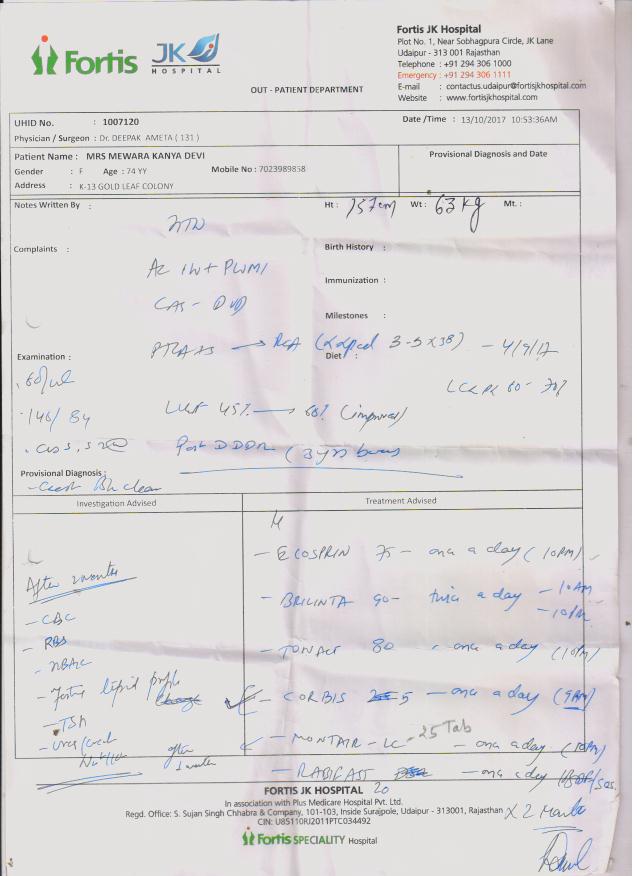 Fortis JK HOSPITAL
Fortis JK Hospital
Plot No. 1, Near Sobhagpura Circle, JK Lane
Udaipur - 313 001 Rajasthan
Telephone : +91 294 306 1000
Emergency : +91 294 306 1111
E-mail : contactus.udaipur@fortisjkhospital.com
Website : www.fortisjkhospital.com
OUT - PATIENT DEPARTMENT
UHID No. : 1007120
Date /Time : 13/10/2017 10:53:36AM
Physician / Surgeon : Dr. DEEPAK AMETA ( 131 )
Patient Name : MRS MEWARA KANYA DEVI
Provisional Diagnosis and Date
Gender : F Age : 74 YY Mobile No : 7023989858
Address : K-13 GOLD LEAF COLONY
Notes Written By : Ht : 157cm Wt : 63 kg Mt. :
HTN
Complaints :
Birth History :
AC IW + PWMI
Immunization :
CAG - DVD
Milestones :
→ RCA 3-5 x 38) - 4/9/17
Diet :
Examination :
60-70%
146/84
LVEF 45% → 60% (improved)
Post DDDR (3 yrs back)
Provisional Diagnosis :
- Chest B/L clear
Investigation Advised
Treatment Advised
- ECOSPRIN 75 - once a day (10PM)
After 2 months
- BRILINTA 90 - twice a day - 10AM
- 10PM
- CBC
- RBS
- TONACT 80 - once a day (10PM)
- HBA1C
- Fasting lipid profile
- CORBIS 5 - once a day (9AM)
- TSH
- MONTAIR - LC - 25 Tab - once a day (10PM)
- Urea/Creat
Na+/K+ after
1 month
- RABIFAST 20 - once a day /SOS
FORTIS JK HOSPITAL
In association with Plus Medicare Hospital Pvt. Ltd.
Regd. Office: S. Sujan Singh Chhabra & Company, 101-103, Inside Surajpole, Udaipur - 313001, Rajasthan
x 2 Months
CIN: U85110RJ2011PTC034492
Fortis SPECIALITY Hospital